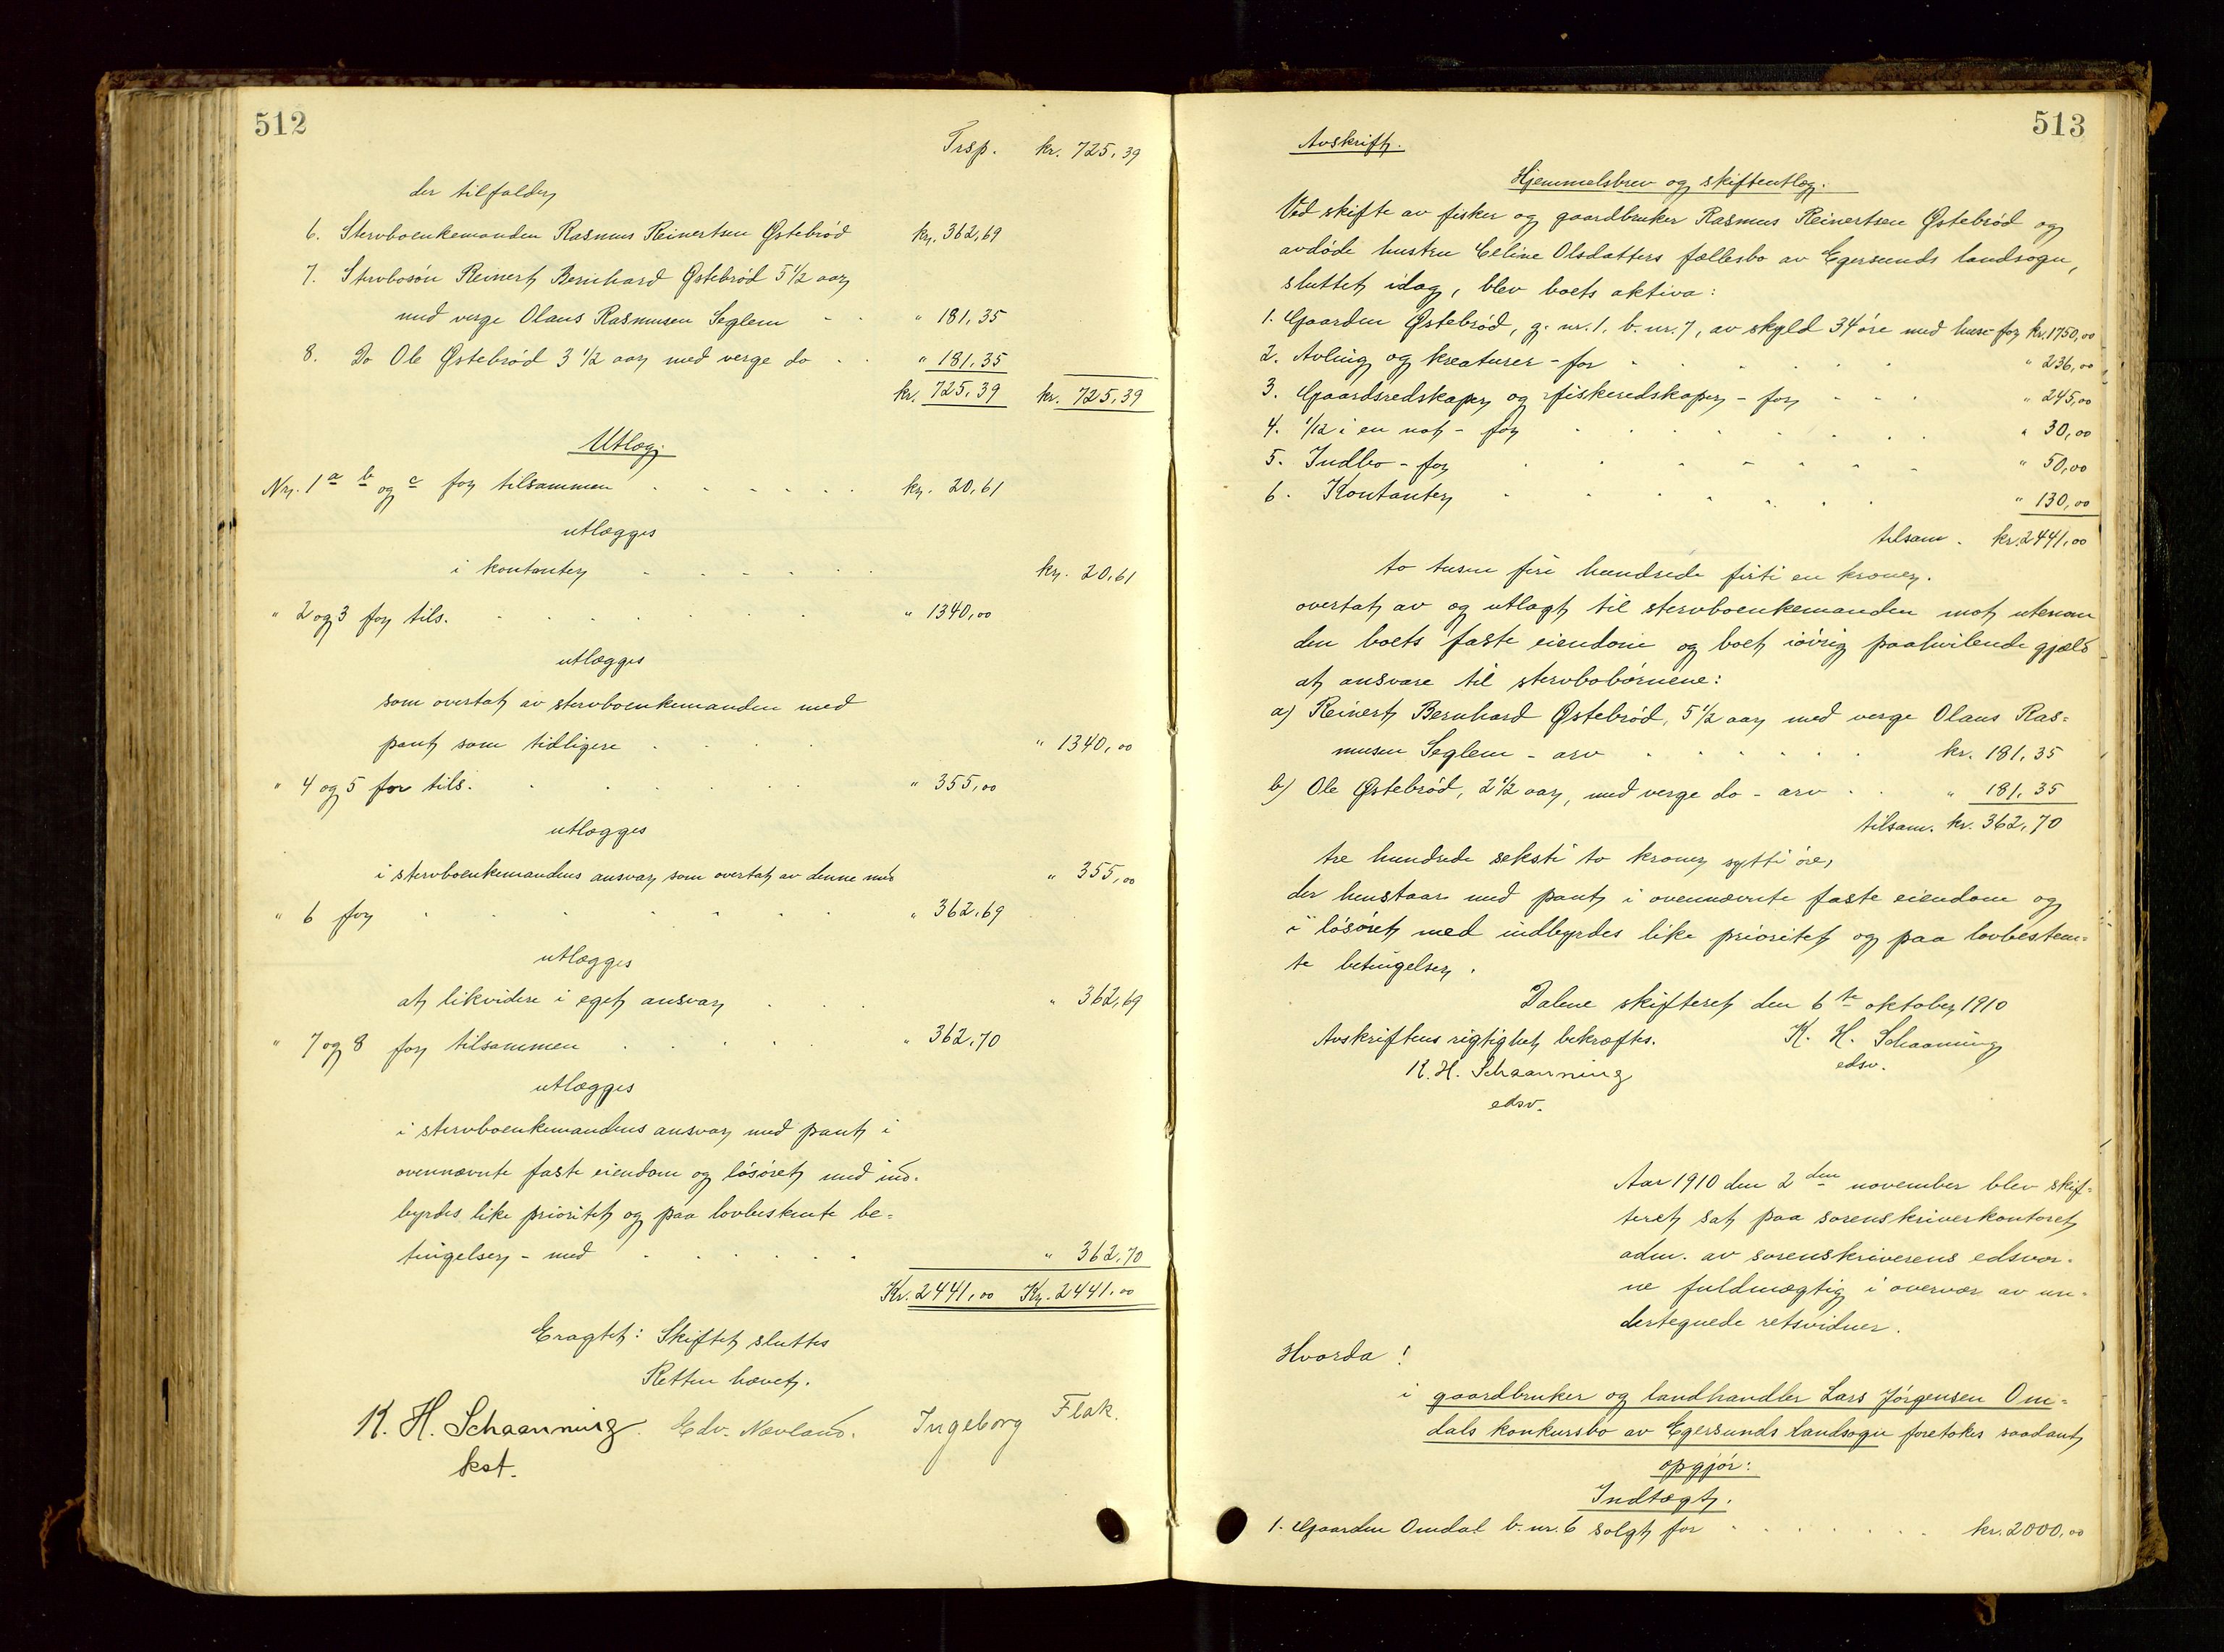 512
Trsp. kr. 725,39
der tilfalder
6. Stervboenkemanden Rasmus Reinertsen Østebrød kr. 362,69
7. Stervbosøn Reinert Bernhard Østebrød 5 1/2 aar
med verge Olaus Rasmusen Seglem - - " 181,35
8. Do Ole Østebrød 3 1/2 aar med verge do - - " 181,35
kr. 725,39 kr. 725,39
Utlæg:
Nr. 1 a b og c for tilsammen - - - - - - kr. 20,61
utlægges
i kontanter - - - - - - kr. 20,61
" 2 og 3 for tils. - - - - - - " 1340,00
utlægges
som overtat av stervboenkemanden med
pant som tidligere - - - - " 1340,00
" 4 og 5 for tils. - - - - - - " 355,00
utlægges
i stervboenkemandens ansvar som overtat av denne med " 355,00
" 6 for - - - - - - " 362,69
utlægges
at likvidere i eget ansvar - - - " 362,69
" 7 og 8 for tilsammen - - - - " 362,70
utlægges
i stervboenkemandens ansvar med pant i
ovennævnte faste eiendom og løsøret med ind-
byrdes like prioritet og paa lovbestemte be=
tingelser - med - - - - - " 362,70
Kr. 2441,00 Kr. 2441,00
Eragtet: Skiftet sluttes
Retten hævet.
K. H. Schaanning. Edv. Nævland. Ingeborg Flak.
kst.
513
Avskrift.
Hjemmelsbrev og skifteutlæg.
Ved skifte av fisker og gaardbruker Rasmus Reinertsen Østebrød og
avdøde hustru Celine Olsdatters fællesbo av Egersunds landsogn,
sluttet idag, blev boets aktiva:
1. Gaarden Østebrød, g. nr. 1, b. nr. 7, av skyld 34 øre med huse for kr. 1750,00
2. Avling og kreaturer - for - - - - - " 236,00
3. Gaardsredskaper og fiskeredskaper - for - - - " 245,00
4. 1/12 i en not - for - - - - - - - " 30,00
5. Indbo - for - - - - - - - " 50,00
6. Kontanter - - - - - - - " 130,00
tilsam. kr. 2441,00
to tusen fire hundrede firti en kroner.
overtat av og utlagt til stervboenkemanden mot utenom
den boets faste eiendom og boet iøvrig paahvilende gjæld
at ansvare til stervbobørnene:
a) Reinert Bernhard Østebrød, 5 1/2 aar med verge Olaus Ras=
musen Seglem - arv - - - - - - kr. 181,35
b) Ole Østebrød, 2 1/2 aar, med verge do - arv - - " 181,35
tilsam. kr. 362,70
tre hundrede seksti to kroner sytti øre,
der henstaar med pant i ovennævnte faste eiendom og
i løsøret med indbyrdes like prioritet og paa lovbestem=
te betingelser.
Dalene skifteret den 6te oktober 1910
Avskriftens rigtighet bekræftes. K. H. Schaanning
K. H. Schaanning edsv.
edsv.
Aar 1910 den 2den november blev skif=
teret sat paa sorenskriverkontoret
adm. av sorenskriverens edsvor-
ne fuldmægtig i overvær av un-
dertegnede retsvidner.
Hvorda!
i gaardbruker og landhandler Lars Jørgensen Om=
dals konkursbo av Egersunds landsogn foretokes saadant
opgjør:
Indtægt.
1. Gaarden Omdal b. nr. 6 solgt for - - - - - - - - kr. 2000,00